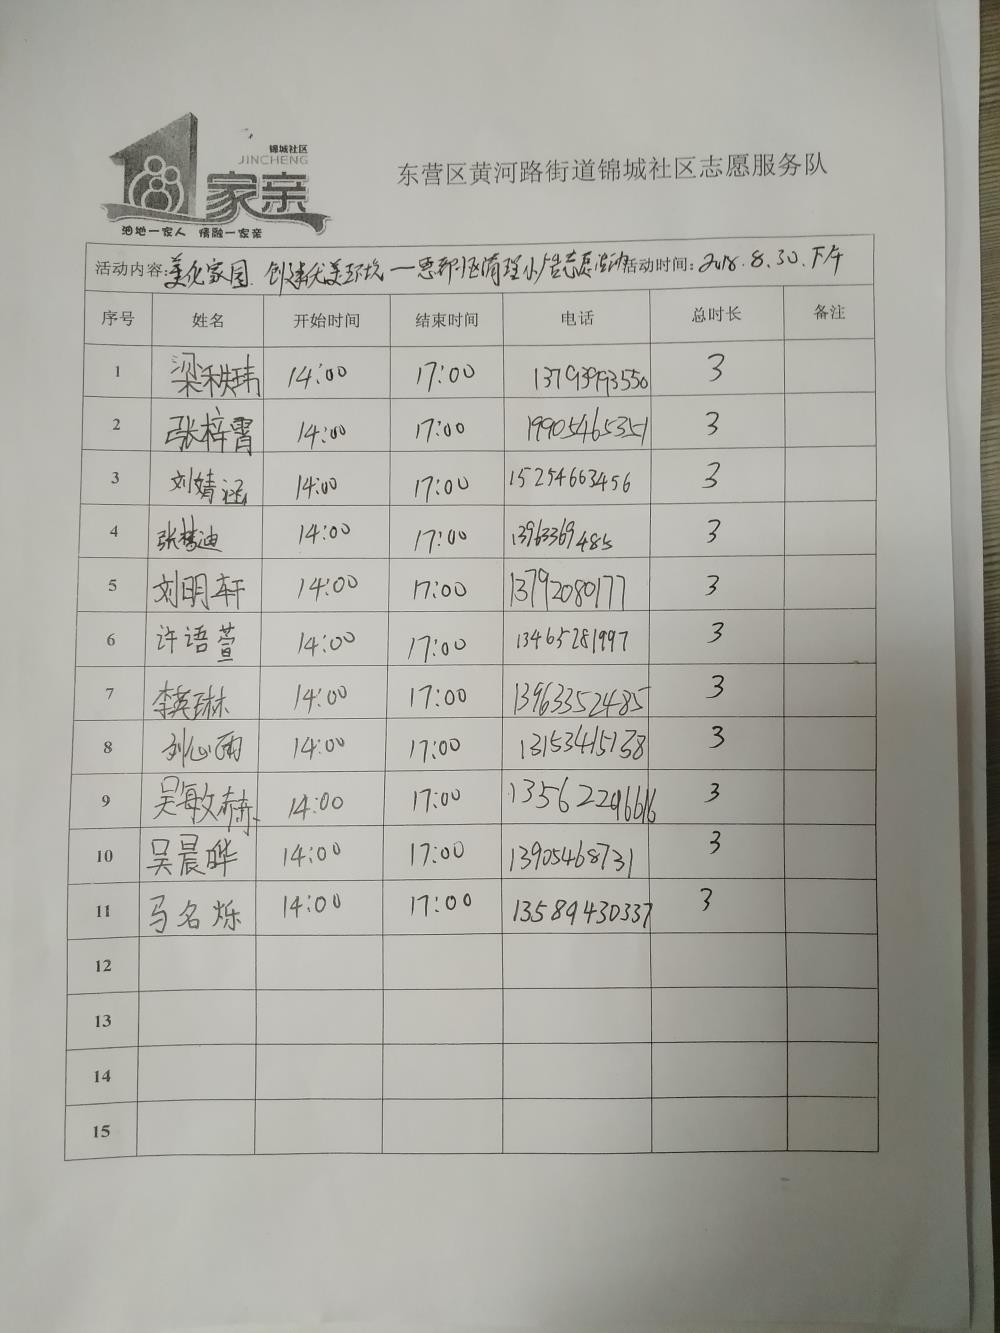 锦城社区
JINCHENG
家亲
油地一家人 情融一家亲
东营区黄河路街道锦城社区志愿服务队
活动内容:美化家园 创建优美环境 清理小广告志愿活动 活动时间: 2018.8.30.下午
序号 姓名 开始时间 结束时间 电话 总时长 备注
1 梁秩玮 14:00 17:00 3
2 张梓霄 14:00 17:00 19905465351 3
3 刘婧涵 14:00 17:00 15254663456 3
4 张梦迪 14:00 17:00 13963369485 3
5 刘明轩 14:00 17:00 13792080177 3
6 许语萱 14:00 17:00 13465281997 3
7 李英琳 14:00 17:00 13963352485 3
8 刘心雨 14:00 17:00 13153415138 3
9 吴敏赫 14:00 17:00 3
10 吴晨晔 14:00 17:00 13905468731 3
11 马名烁 14:00 17:00 13589430337 3
12
13
14
15